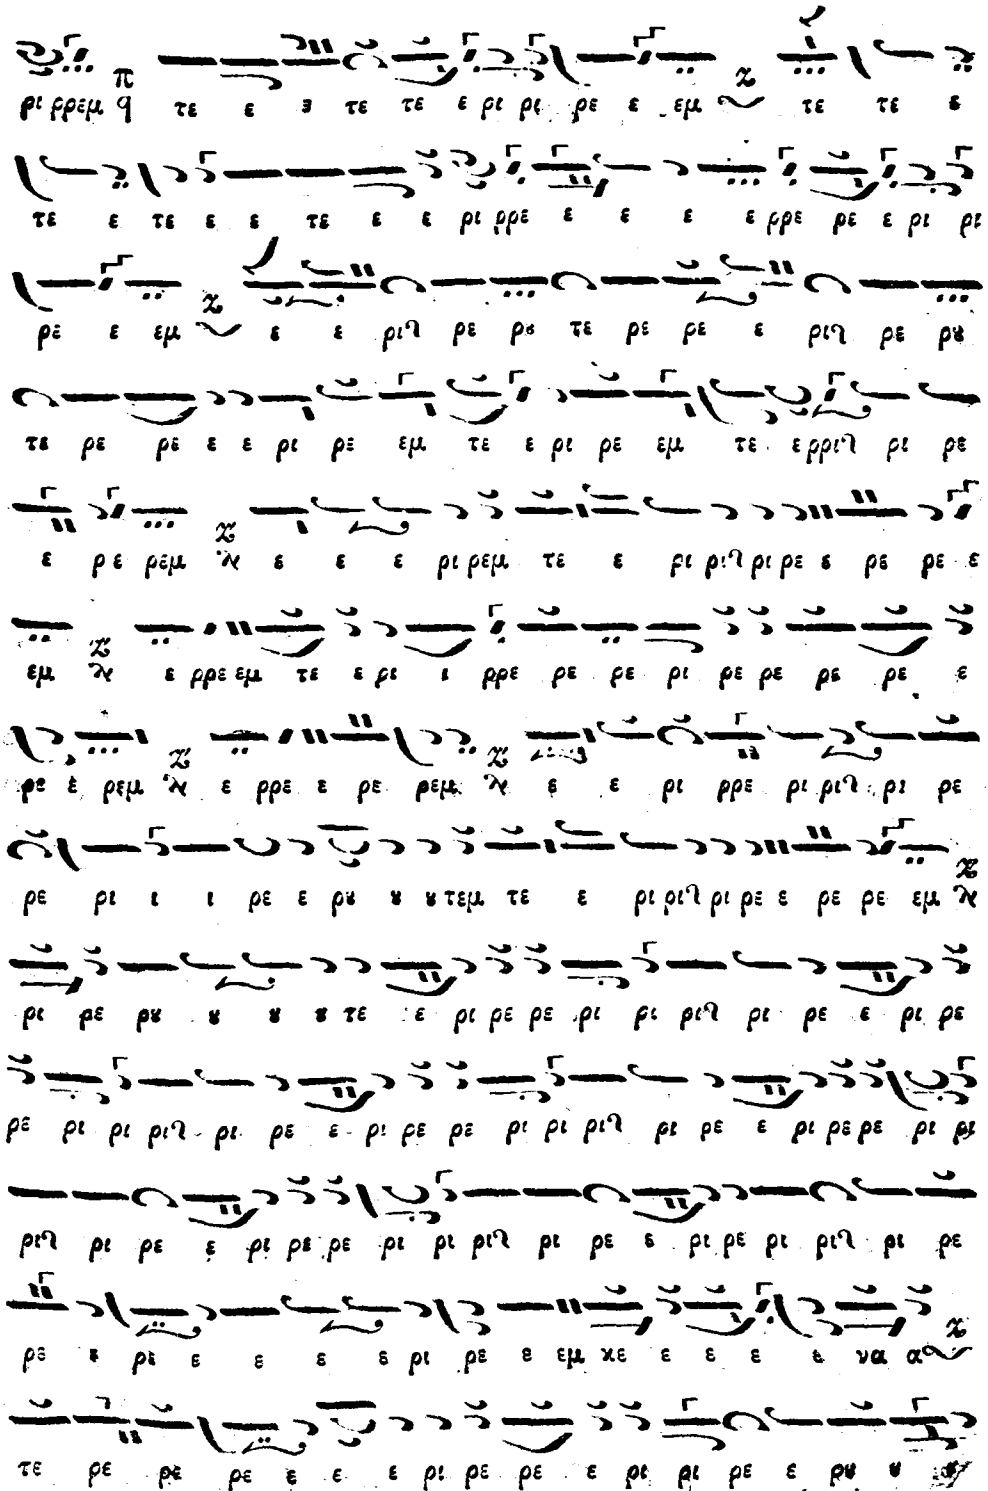 ρι ρρεμ π q τε ε ε τε τε ε ρι ρι ρε ε εμ τε τε ε
τε ε τε ε ε τε ε ε ρι ρρε ε ε ε ε ρρε ρε ε ρι ρι
ρε ε εμ ε ε ριϛ ρε ρȣ τε ρε ρε ε ριϛ ρε ρȣ
τε ρε ρε ε ε ρι ρε εμ τε ε ρι ρε εμ τε ε ρριϛ ρι ρε
ε ρε ρεμ ε ε ε ρι ρεμ τε ε ρι ριϛ ρι ρε ε ρε ρε ε
εμ ε ρρε εμ τε ε ρι ι ρρε ρε ρε ρι ρε ρε ρε ρε ε
ρε ε ρεμ ε ρρε ε ρε ρεμ ε ε ρι ρρε ρι ριϛ ρι ρε
ρε ρι ι ι ρε ε ρȣ ȣ ȣ τεμ τε ε ρι ριϛ ρι ρε ε ρε ρε εμ
ρι ρε ρȣ ȣ ȣ ȣ τε ε ρι ρε ρε ρι ρι ριϛ ρι ρε ε ρι ρε
ρε ρι ρι ριϛ ρι ρε ε ρι ρε ρε ρι ρι ριϛ ρι ρε ε ρι ρε ρε ρι ρι
ριϛ ρι ρε ε ρι ρε ρε ρι ρι ριϛ ρι ρε ε ρι ρε ρι ριϛ ρι ρε
ρε ε ρε ε ε ε ε ρι ρε ε εμ κε ε ε ε ε να α
τε ρε ρε ρε ε ε ε ρι ρε ρε ε ρι ρι ρε ε ρȣ ȣ